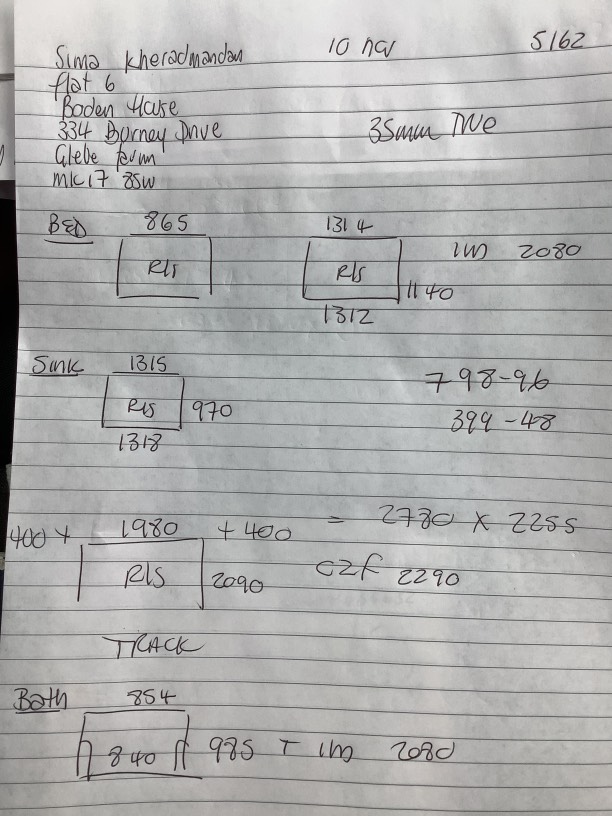 Sima Kheradmandan 10 nov 5162
flat 6
Boden House
334 Burney Drive 35mm TWE
Glebe farm
mk17 8SW
BED 865 1314
R/S R/S 1m 2080
1140
1312
Sink 1315
R/S 970 798-96
1318 399-48
400 + 1980 + 400 = 2780 x 2255
R/S 2090 C2F 2290
TRACK
Bath 854
840 985 T 1m 2080